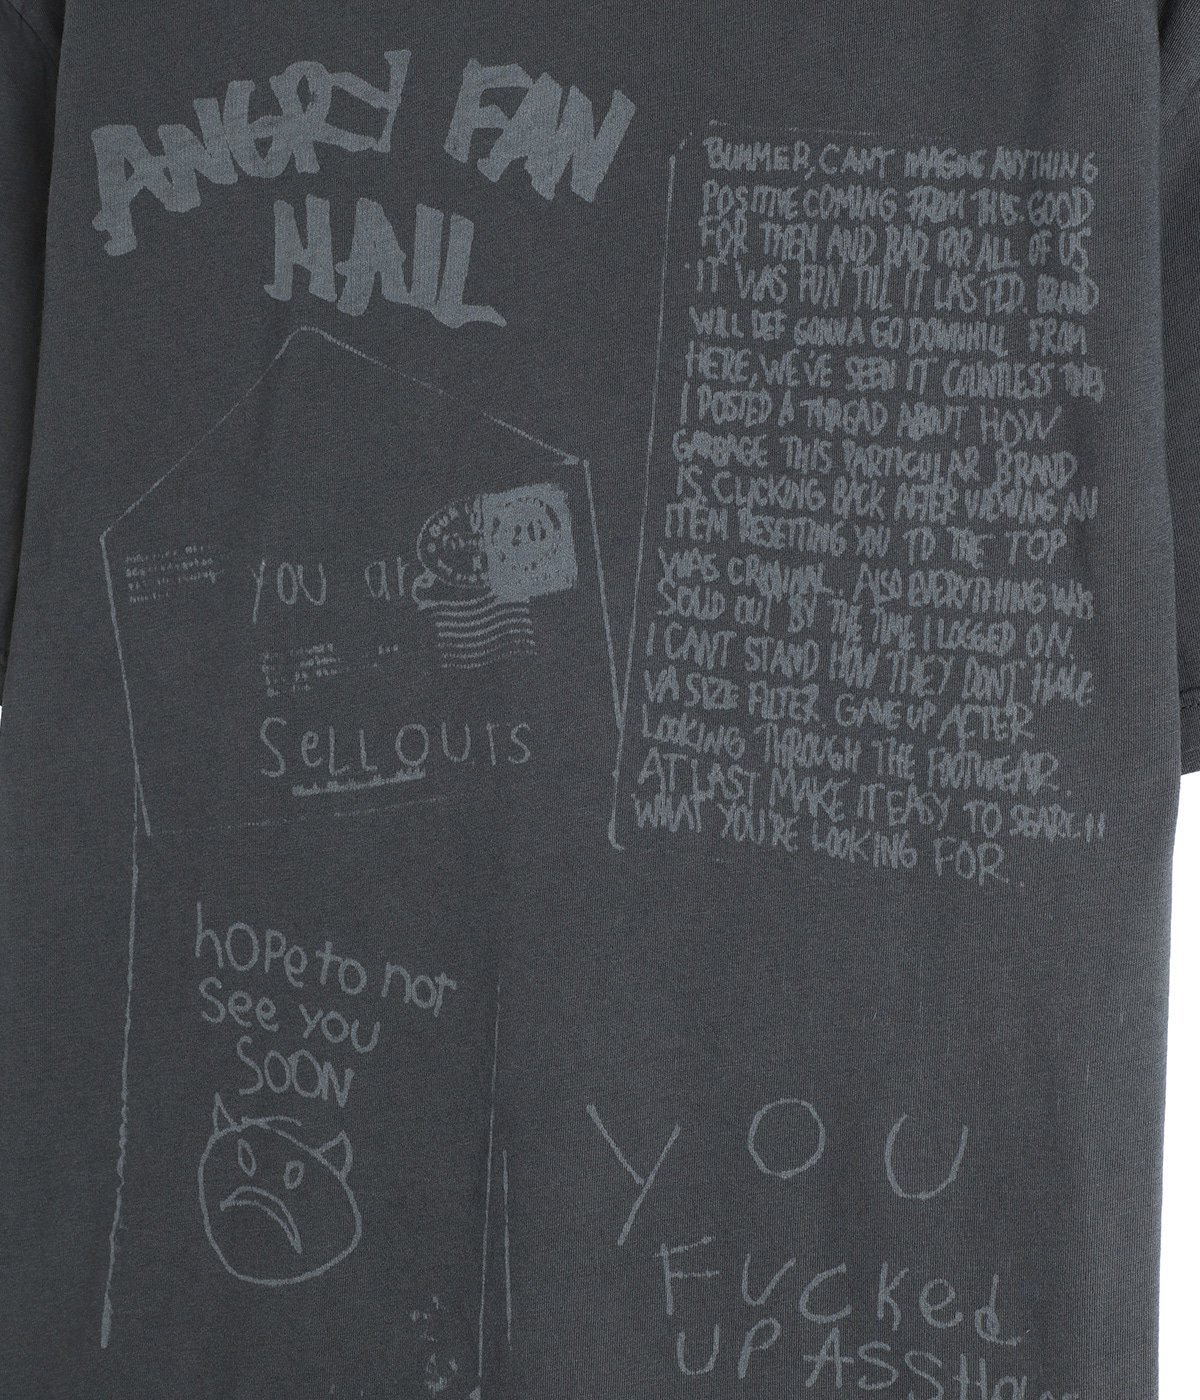 ANGRY FAN
HAIL
BUMMER, CANT IMAGING ANYTHING
POSITIVE COMING FROM THIS. GOOD
FOR THEM AND BAD FOR ALL OF US
IT WAS FUN TILL IT LASTED. BRAND
WILL DEF GONNA GO DOWNHILL FROM
HERE, WE'VE SEEN IT COUNTLESS TIMES
I POSTED A THREAD ABOUT HOW
GARBAGE THIS PARTICULAR BRAND
IS. CLICKING BACK AFTER VIEWING AN
ITEM RESETTING YOU TO THE TOP
WAS CRIMINAL. ALSO EVERYTHING WAS
SOLD OUT BY THE TIME I LOGGED ON.
I CANT STAND HOW THEY DON'T HAVE
A SIZE FILTER. GAVE UP AFTER
LOOKING THROUGH THE FOOTWEAR.
AT LAST MAKE IT EASY TO SEARCH
WHAT YOU'RE LOOKING FOR.
20
you are
SeLLOUTS
hOPe to not
see you
SOON
YOU
FUCKed
UP ASSHO